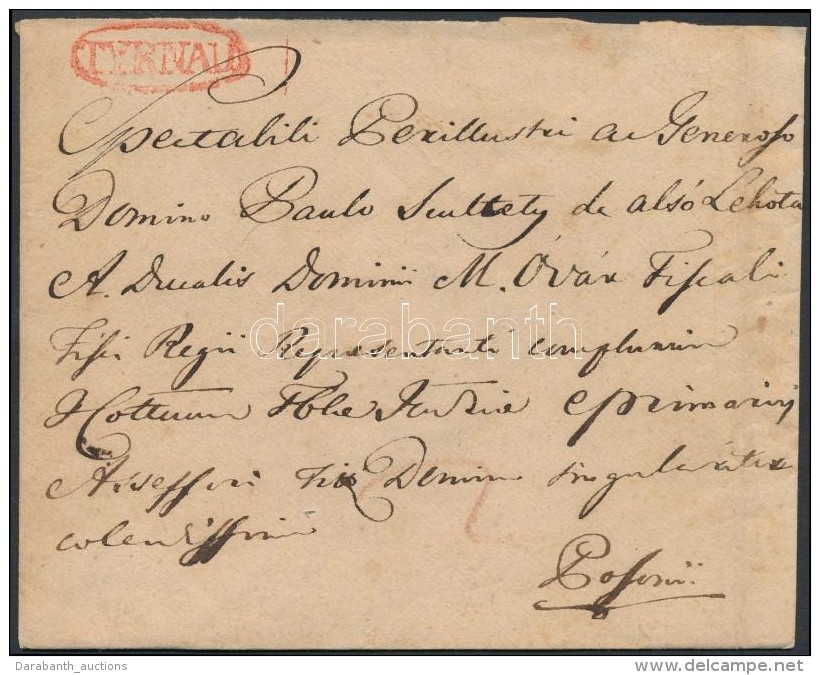 TYRNAU
Spectabili Perillustri ac Generoso
Domino Paulo Scultety de alsó Lehota
A. Ducalis Dominii M. Óvár Fiscali
Fisci Regii Repraesentanti complurium
Cottuum Tblae Judriae primariij
Assessori Domino singulariter
colendissimo
Posonii
darabanth
Darabanth_auctions
http://www.delcampe.net